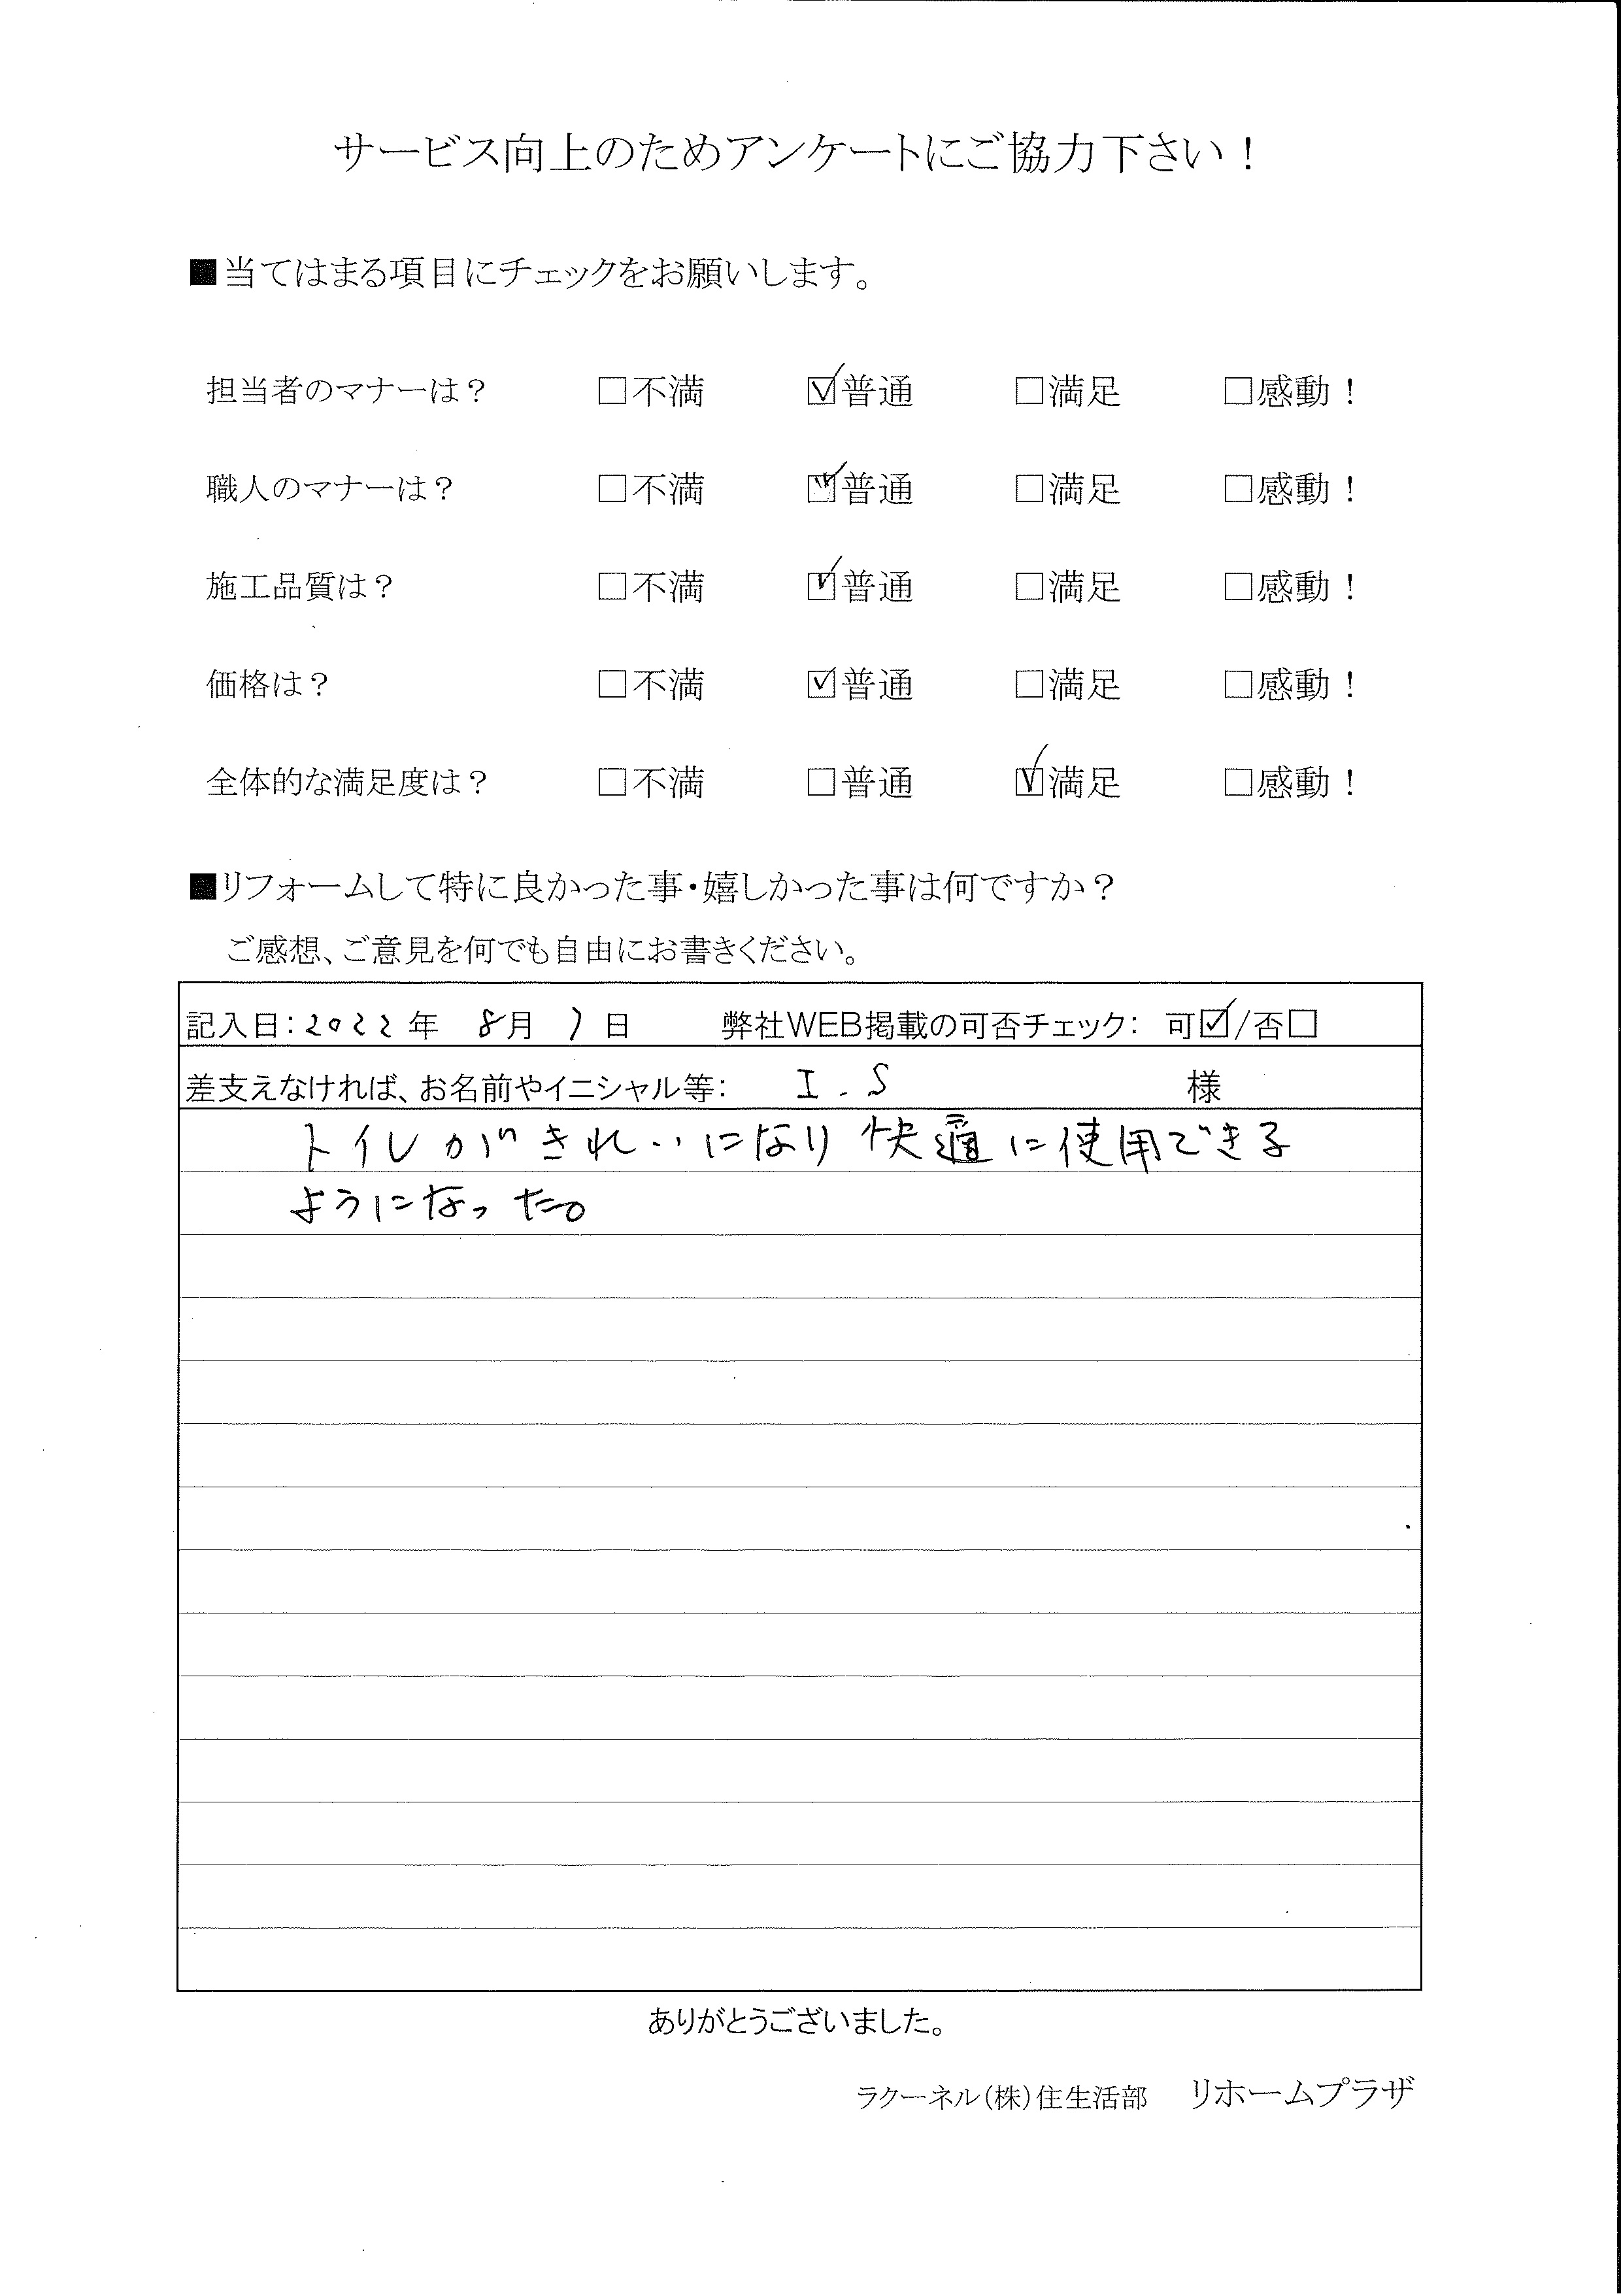 サービス向上のためアンケートにご協力下さい！
■当てはまる項目にチェックをお願いします。
担当者のマナーは？ □不満 ☑普通 □満足 □感動！
職人のマナーは？ □不満 ☑普通 □満足 □感動！
施工品質は？ □不満 ☑普通 □満足 □感動！
価格は？ □不満 ☑普通 □満足 □感動！
全体的な満足度は？ □不満 □普通 ☑満足 □感動！
■リフォームして特に良かった事・嬉しかった事は何ですか？
ご感想、ご意見を何でも自由にお書きください。
記入日：2022年 8月 7日 弊社WEB掲載の可否チェック： 可☑/否□
差支えなければ、お名前やイニシャル等： I.S 様
トイレがきれいになり快適に使用できる
ようになった。
ありがとうございました。
ラクーネル（株）住生活部 リホームプラザ